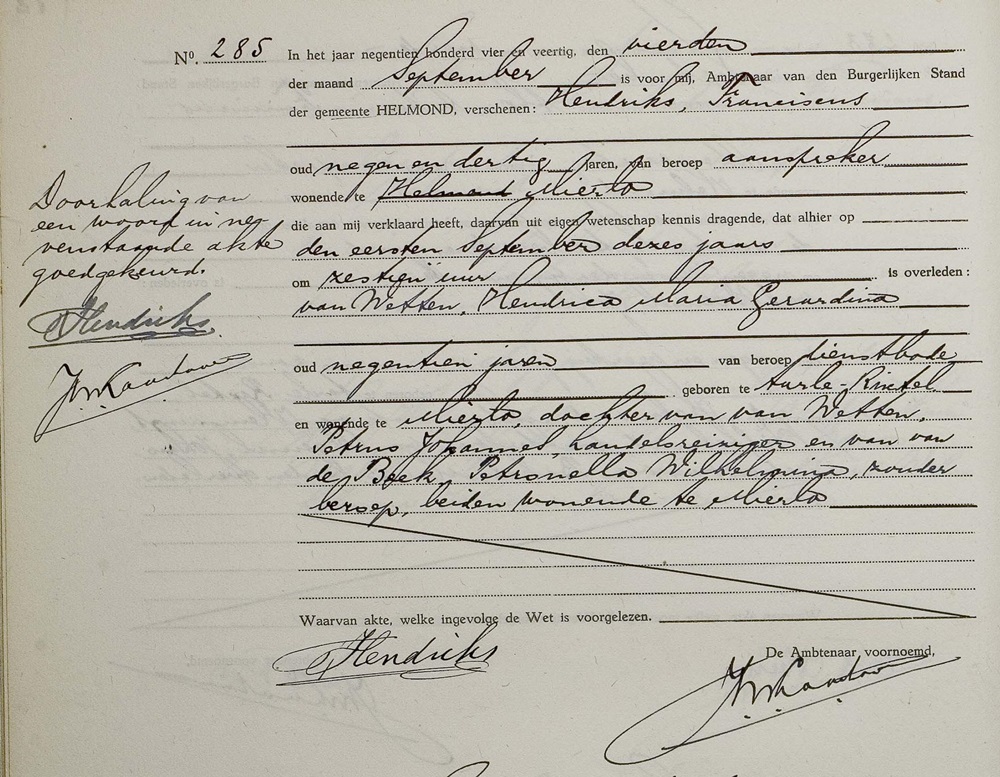 No. 285 In het jaar negentien honderd vier en veertig, den vierden
der maand September is voor mij, Ambtenaar van den Burgerlijken Stand
der gemeente HELMOND, verschenen: Hendriks, Franciscus
oud negen en dertig jaren, van beroep aanspreker
wonende te Helmond Mierlo
die aan mij verklaard heeft, daarvan uit eigen wetenschap kennis dragende, dat alhier op
den eersten September dezes jaars
om zestien uur is overleden:
van Wetten, Hendrica Maria Gerardina
oud negentien jaren van beroep dienstbode
geboren te Aarle-Rixtel
en wonende te Mierlo, dochter van van Wetten,
Petrus Johannes, handelsreiziger en van van
de Beek, Petronella Wilhelmina, zonder
beroep, beiden wonende te Mierlo
Waarvan akte, welke ingevolge de Wet is voorgelezen.
Hendriks
De Ambtenaar, voornoemd,
Doorhaling van
een woord in ne-
venstaande akte
goedgekeurd.
Hendriks